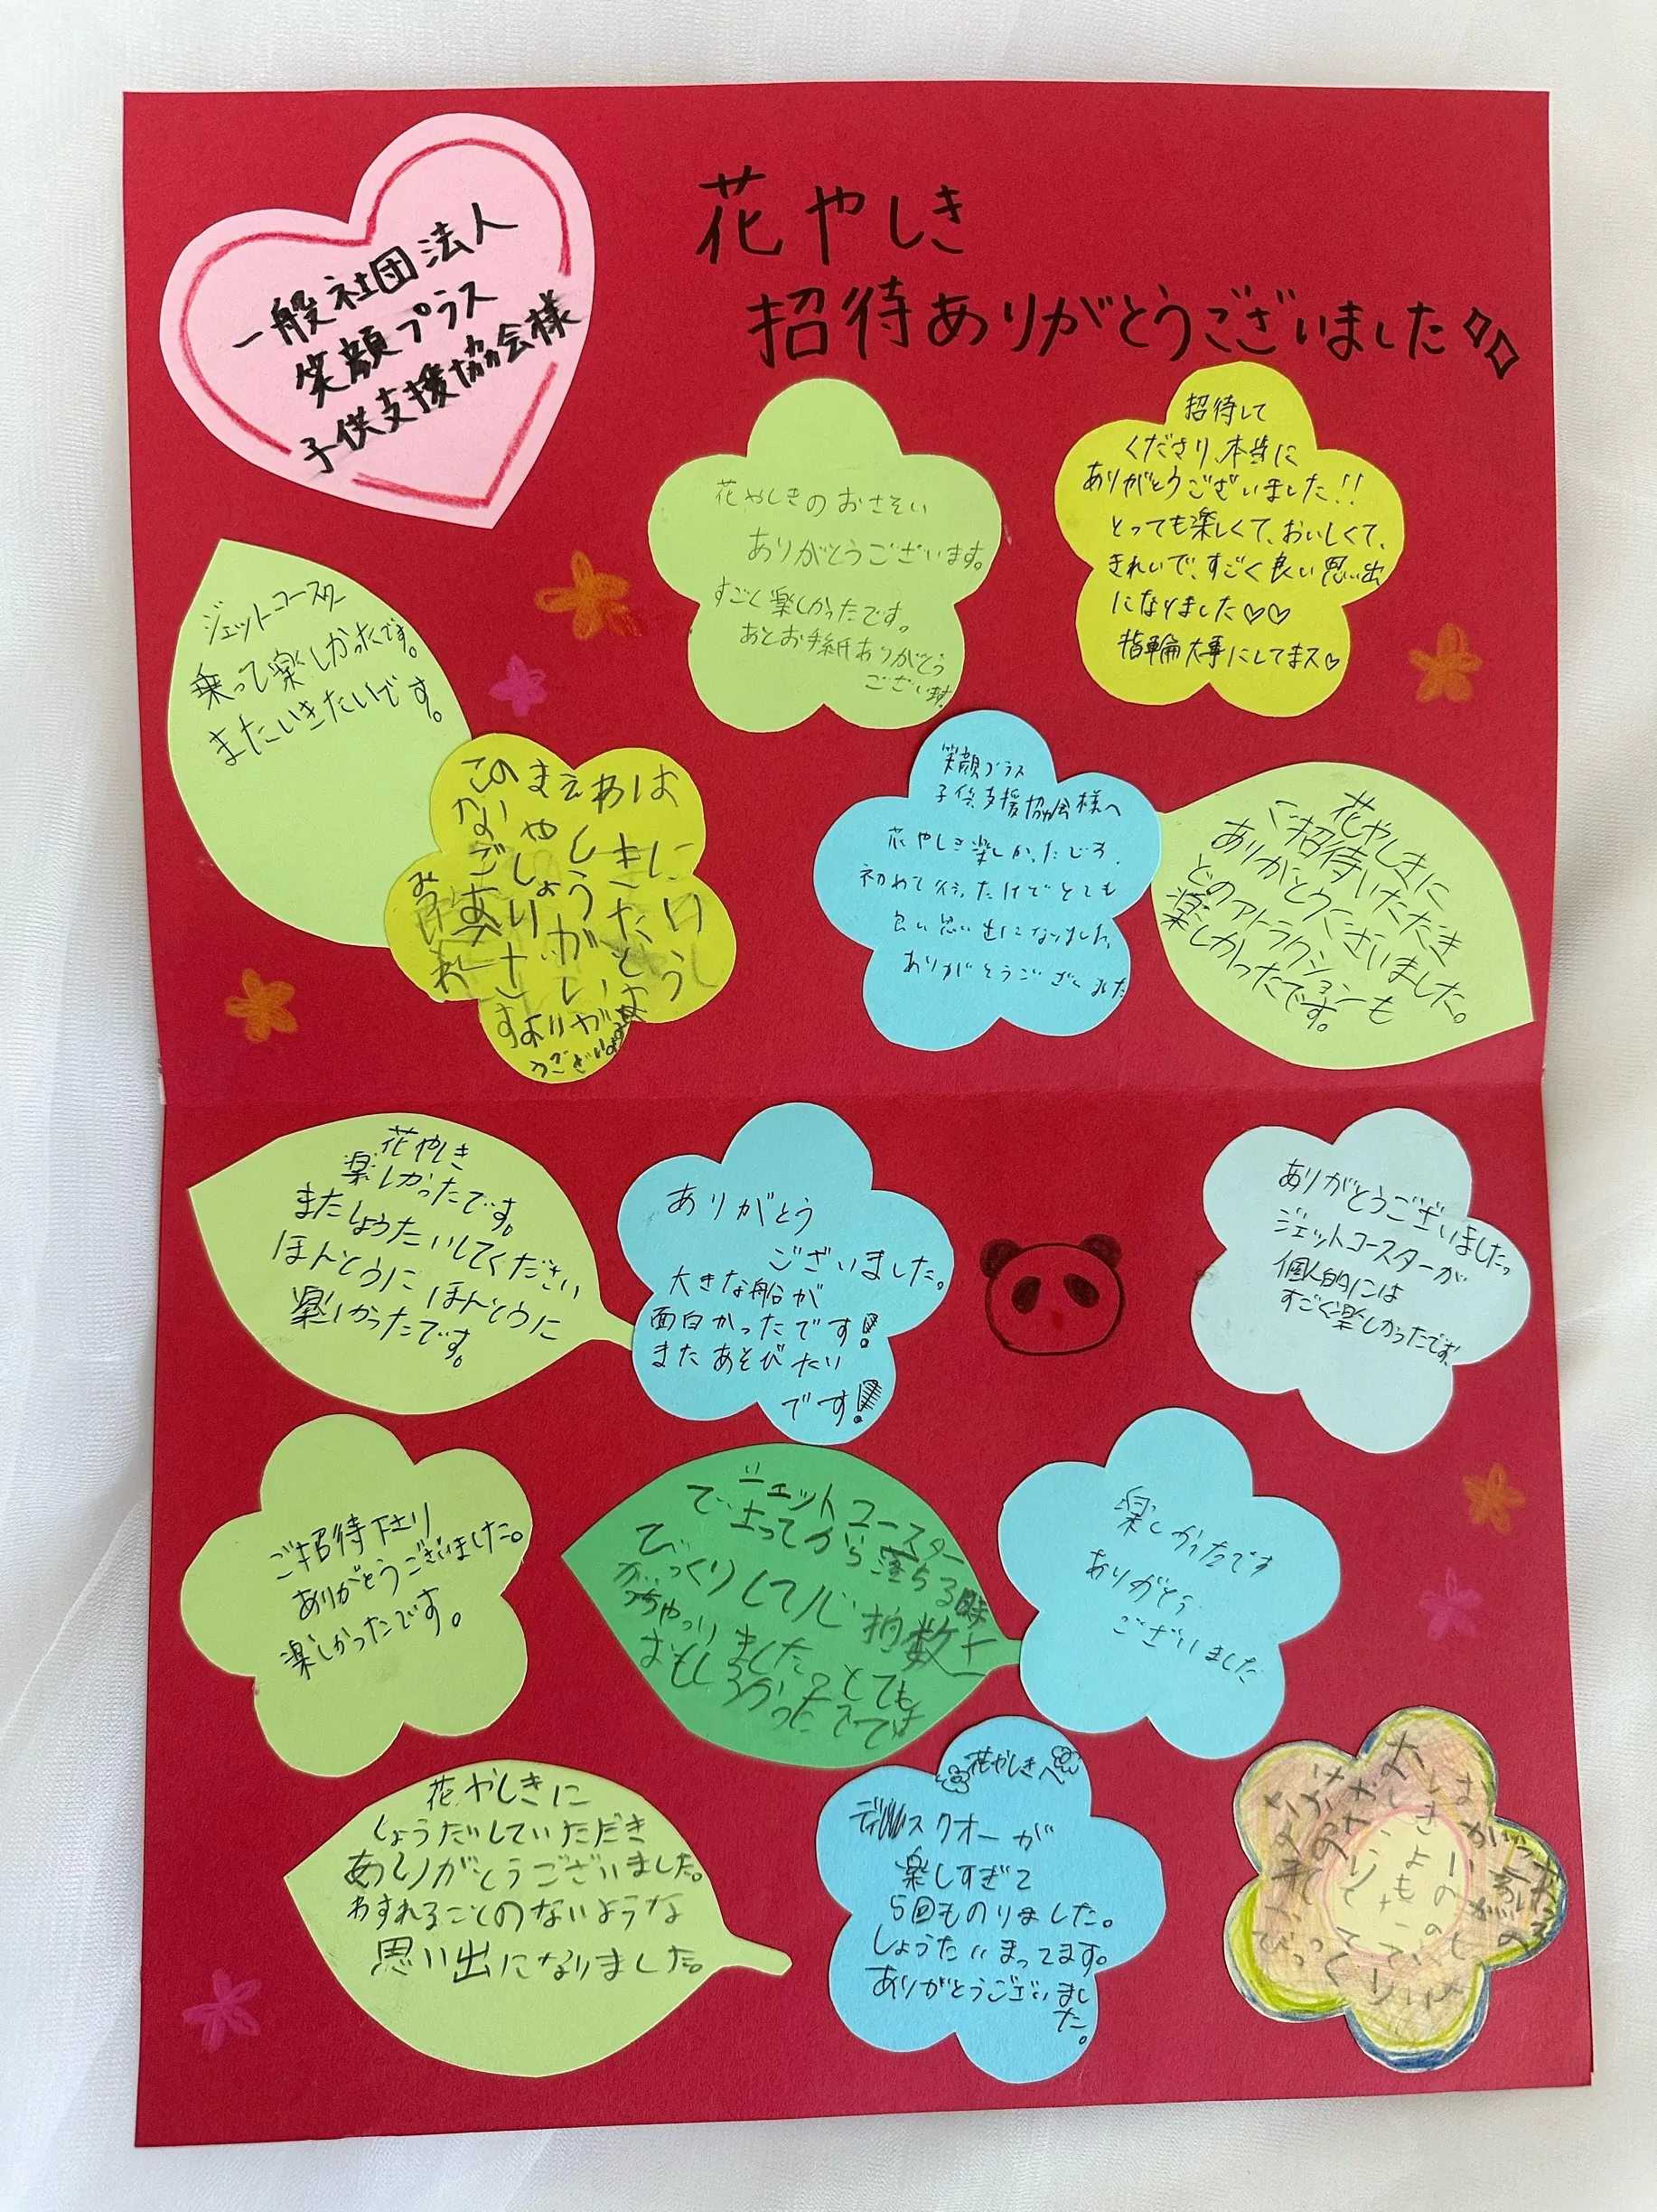 一般社団法人
笑顔プラス
子供支援協会様
花やしき
招待ありがとうございました
花やしきのおさそい
ありがとうございます。
すごく楽しかったです。
あとお手紙ありがとう
ございます。
招待して
くださり、本当に
ありがとうございました!!
とっても楽しくて、おいしくて、
きれいで、すごく良い思い出
になりました♡♡
指輪大事にしてまス♡
ジェットコースター
乗って楽しかったです。
またいきたいです。
このまえわは
笑顔プラス
子供支援協会様へ
花やしき楽しかったです。
初めて行ったけどとても
良い思い出になりました。
ありがとうござ
花やしきに
ご招待いただき
ありがとうございました。
どのアトラクションも
楽しかったです。
花やしき
楽しかったです。
またしょうたいしてください
ほんとうにほんとうに
楽しかったです。
ありがとう
ございました。
大きな船が
面白かったです!
またあそびたい
です!
ありがとうございました。
ジェットコースターが
個人的には
すごく楽しかったです。
ご招待下さり
ありがとうございました。
楽しかったです。
ジェットコースター
で止まってから落ちる時
びっくりして心拍数上
がっちゃいました。とても
おもしろかったです
楽しかったです
ありがとう
ございました
花やしきに
しょうだいしていただき
ありがとうございました。
わすれることのないような
思い出になりました。
花やしきへ
ディスクオーが
楽しすぎて
5回ものりました。
しょうたいまってます。
ありがとうございまし
た。